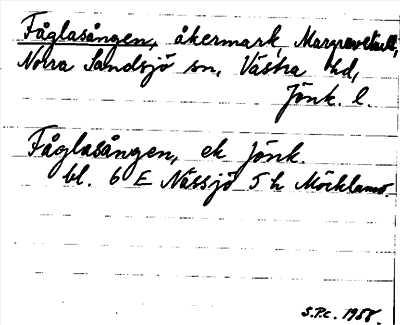 Fåglasången, åkermark,
Norra Sandsjö sn, Västra hd,
Jönk. l.
Fåglasången, ek Jönk.
bl. 6 E Nässjö 5 h Möcklamo.
S.P.c. 1958.